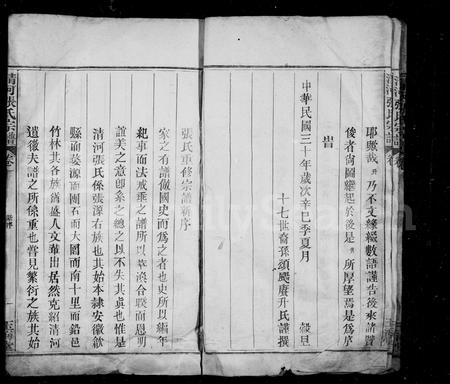 耶歟哉升乃不文縷綴數語謹告後來諸賢
俊者尚圖繼起於後是升所厚望焉是為序
中華民國三十年歲次辛巳季夏月
穀旦
十七世裔孫頌颺賡升氏謹撰
清河張氏宗譜
張氏重修宗譜新序
家之有譜倣國史而為之者也史所以編年
紀事而法戒垂之譜所以萃渙合睽而恩明
誼美之意即系之總之以不失其真也惟是
清河張氏係張源右族也其始本隸安徽歙
縣而婺源而團石而大園而南十里而鉛邑
竹林其各族為盛人文蔚出居然克紹清河
遺徽夫譜之所係重也昔見繁衍之族其始
清河張氏宗譜